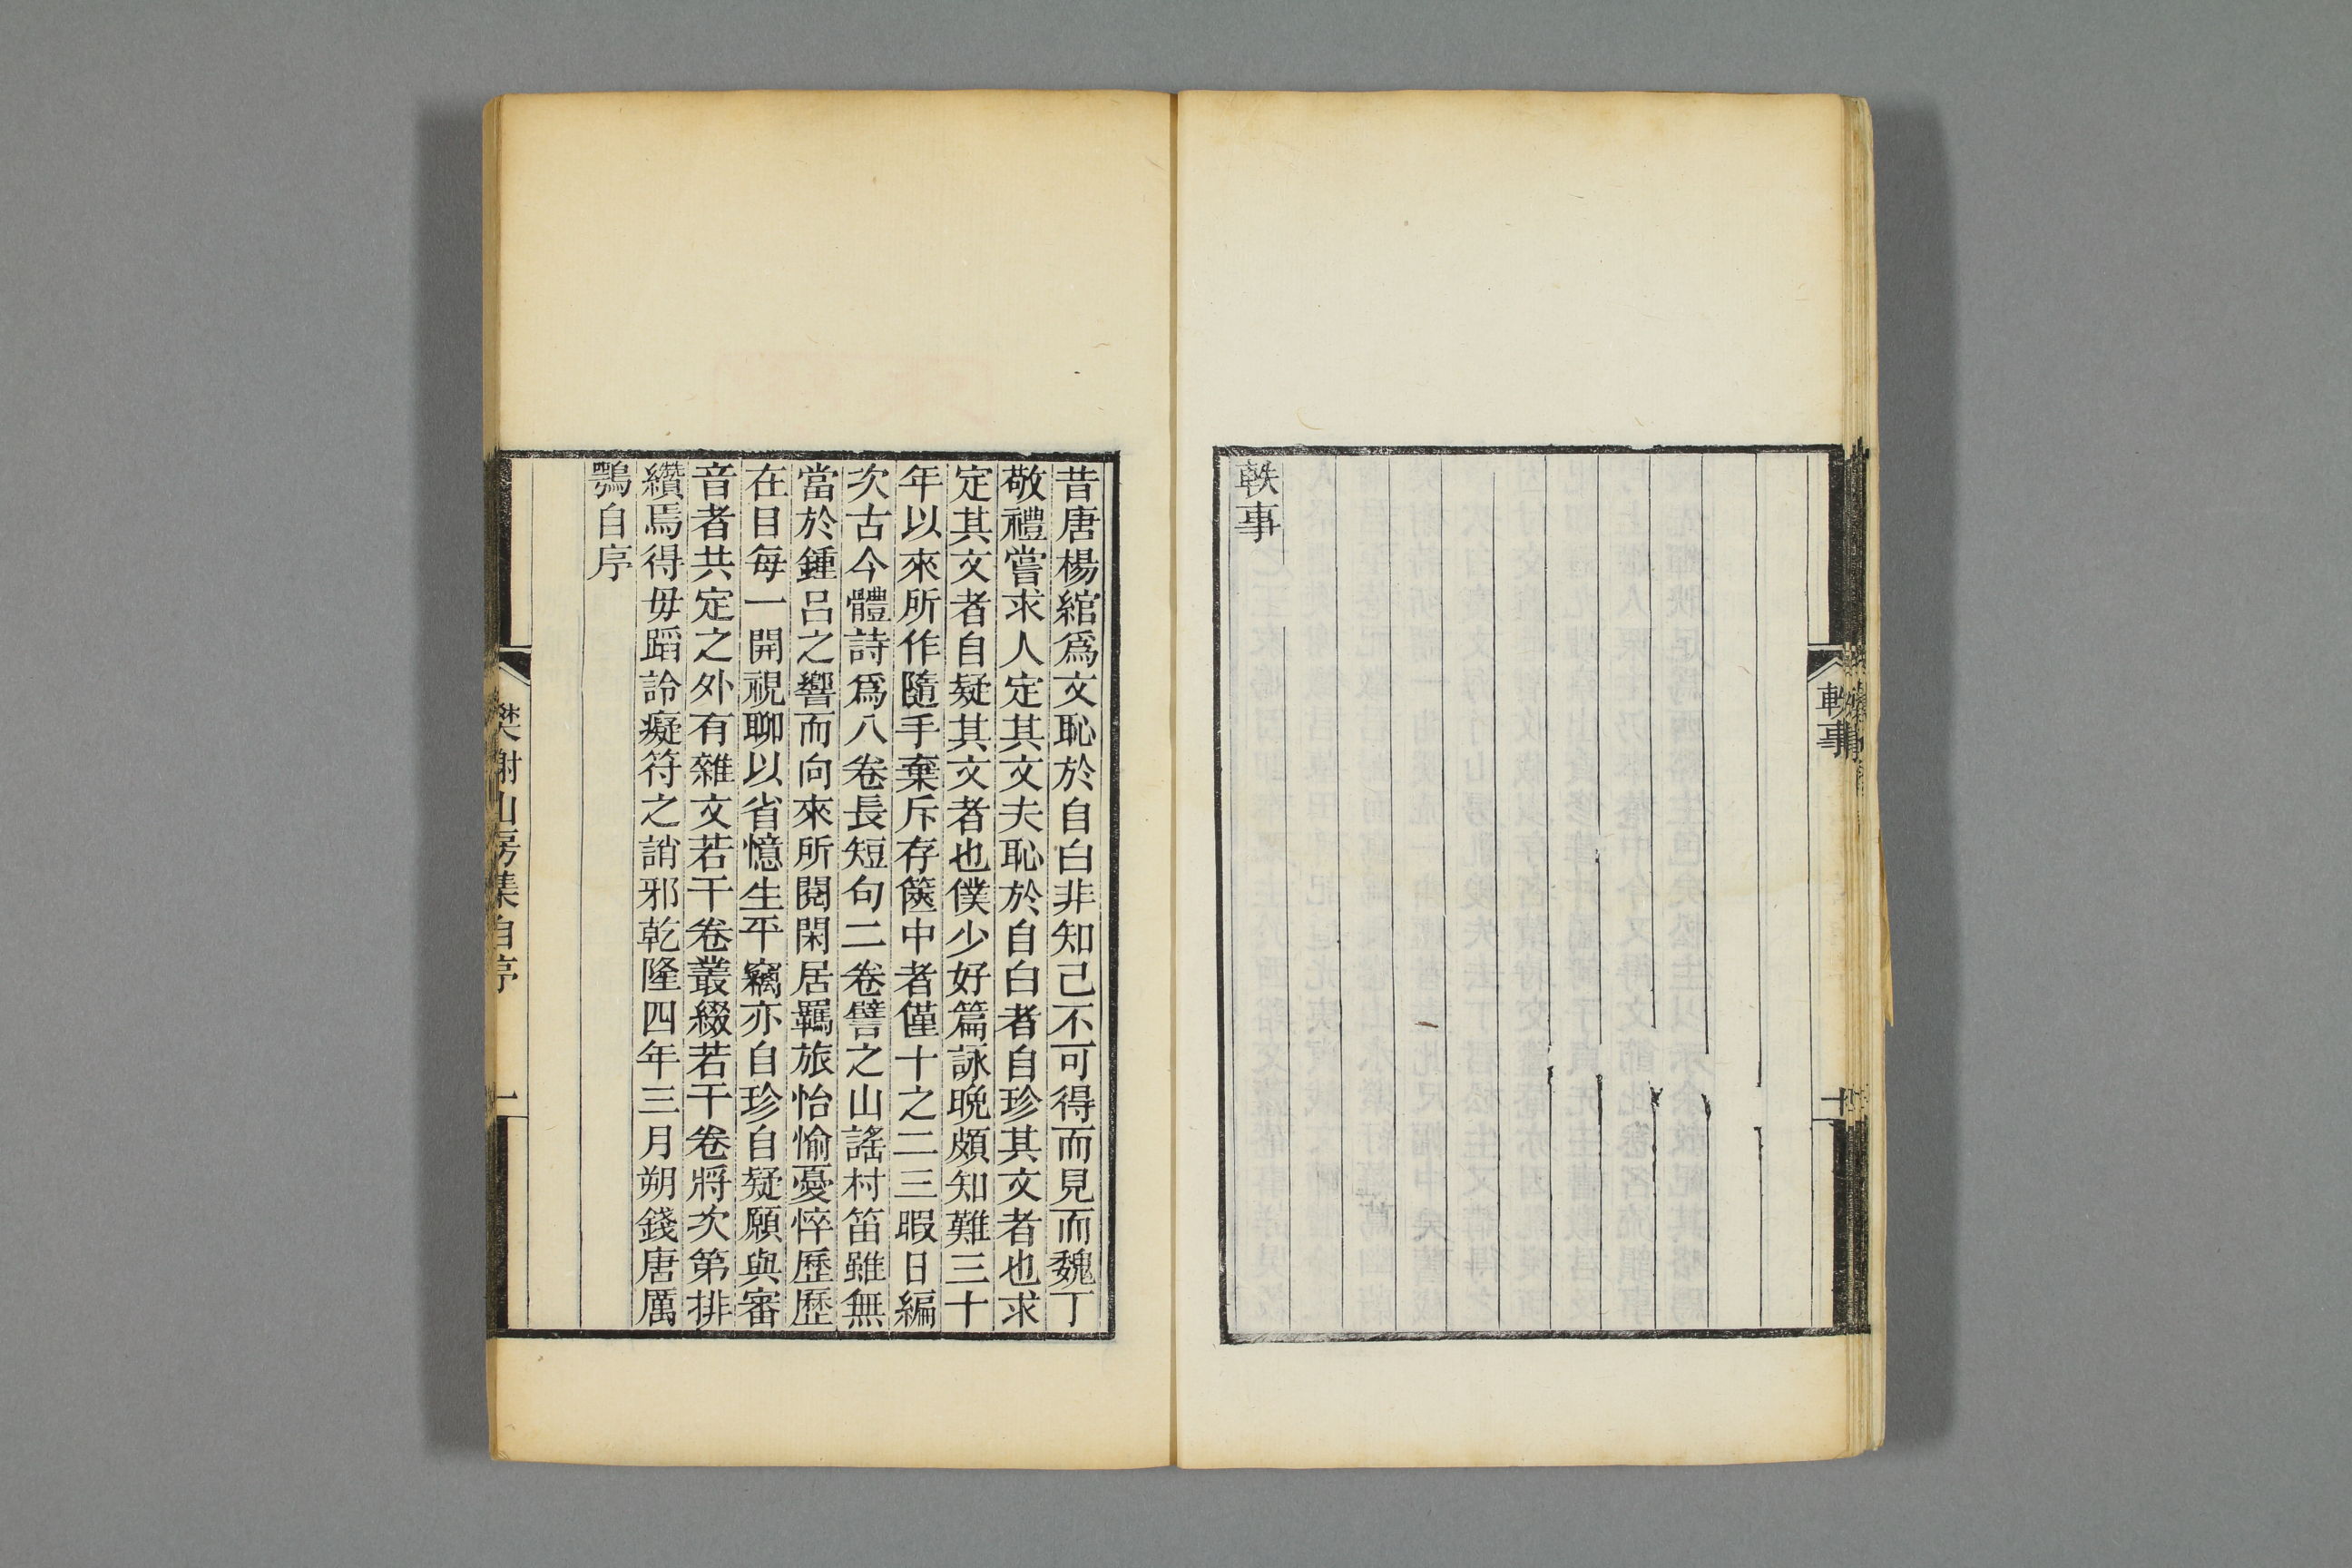 軼事
軼事
昔唐楊綰爲文恥於自白非知己不可得而見而魏丁
敬禮嘗求人定其文夫恥於自白者自珍其文者也求
定其文者自疑其文者也僕少好篇詠晩頗知難三十
年以來所作隨手棄斥存篋中者僅十之二三暇日編
次古今體詩爲八卷長短句二卷譬之山謠村笛雖無
當於鍾呂之響而向來所閱閑居羈旅怡愉憂悴歷歷
在目每一開視聊以省憶生平竊亦自珍自疑願與審
音者共定之外有雜文若干卷叢綴若干卷將次第排
纘焉得毋蹈詅癡符之誚邪乾隆四年三月朔錢唐厲
鶚自序
樊榭山房集自序
一